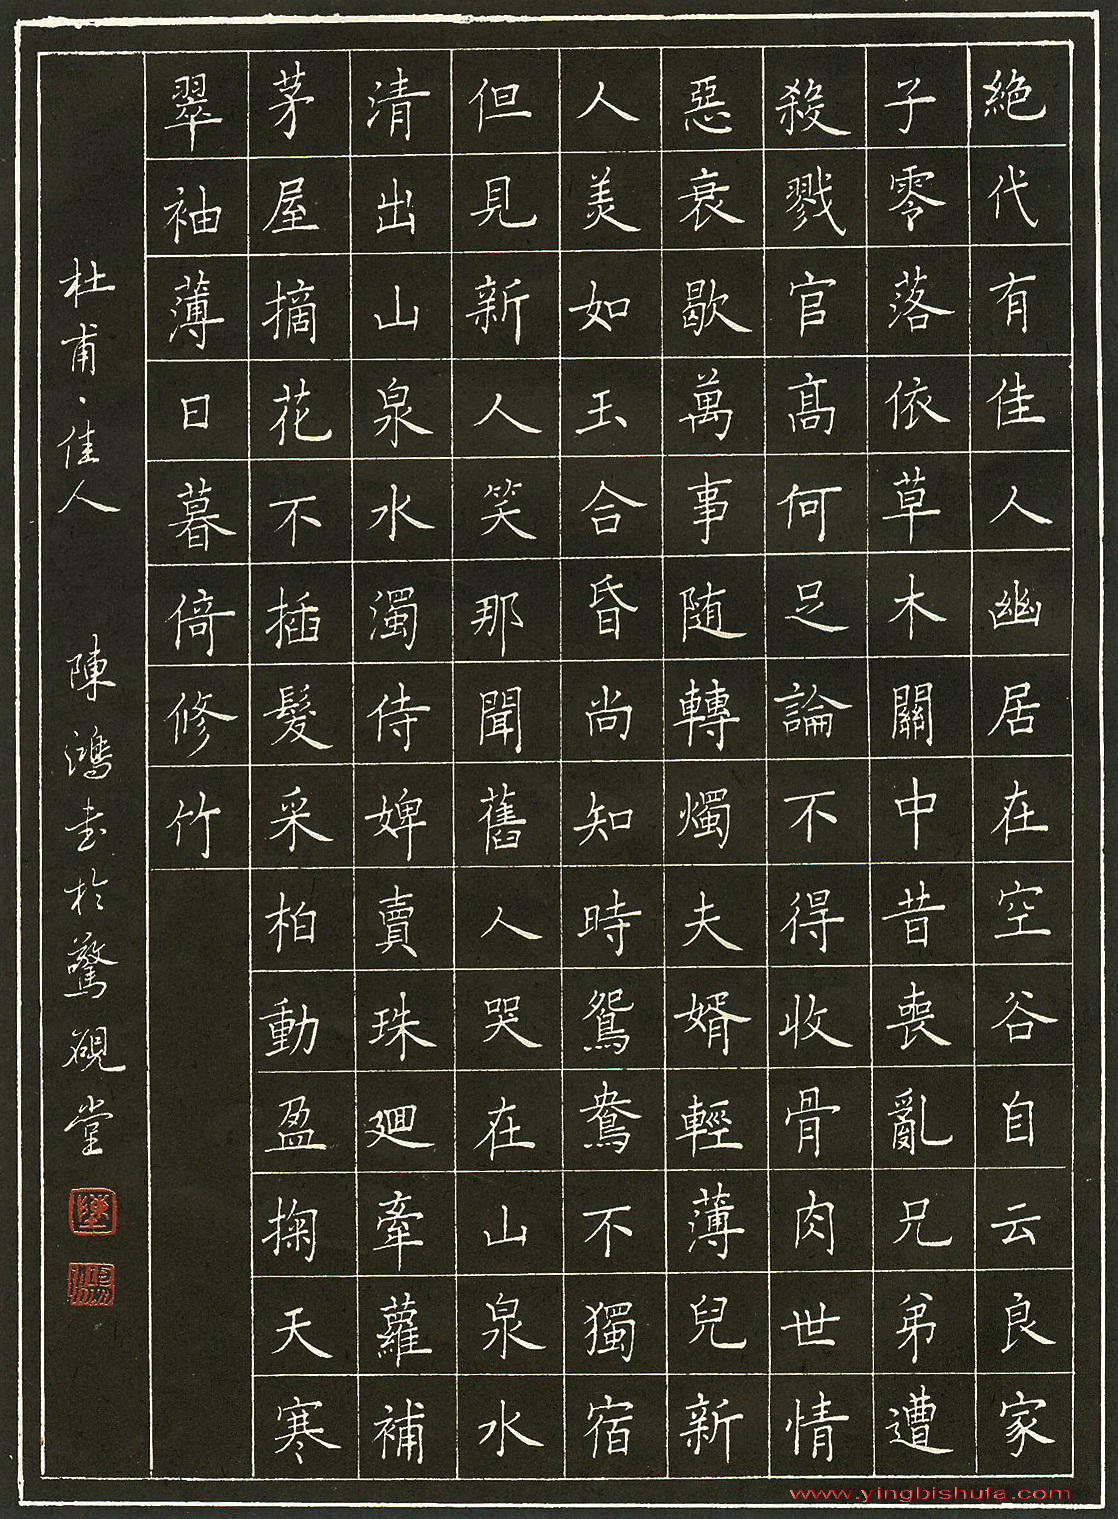 絶代有佳人幽居在空谷自云良家
子零落依草木關中昔喪亂兄弟遭
殺戮官髙何足論不得收骨肉世情
惡衰歇萬事随轉燭夫婿輕薄兒新
人美如玉合昏尚知時鴛鴦不獨宿
但見新人笑那聞舊人哭在山泉水
清出山泉水濁侍婢賣珠廻牽蘿補
茅屋摘花不插髮采柏動盈掬天寒
翠袖薄日暮倚修竹
杜甫、佳人 陳鴻书於驚硯堂
www.yingbishufa.com